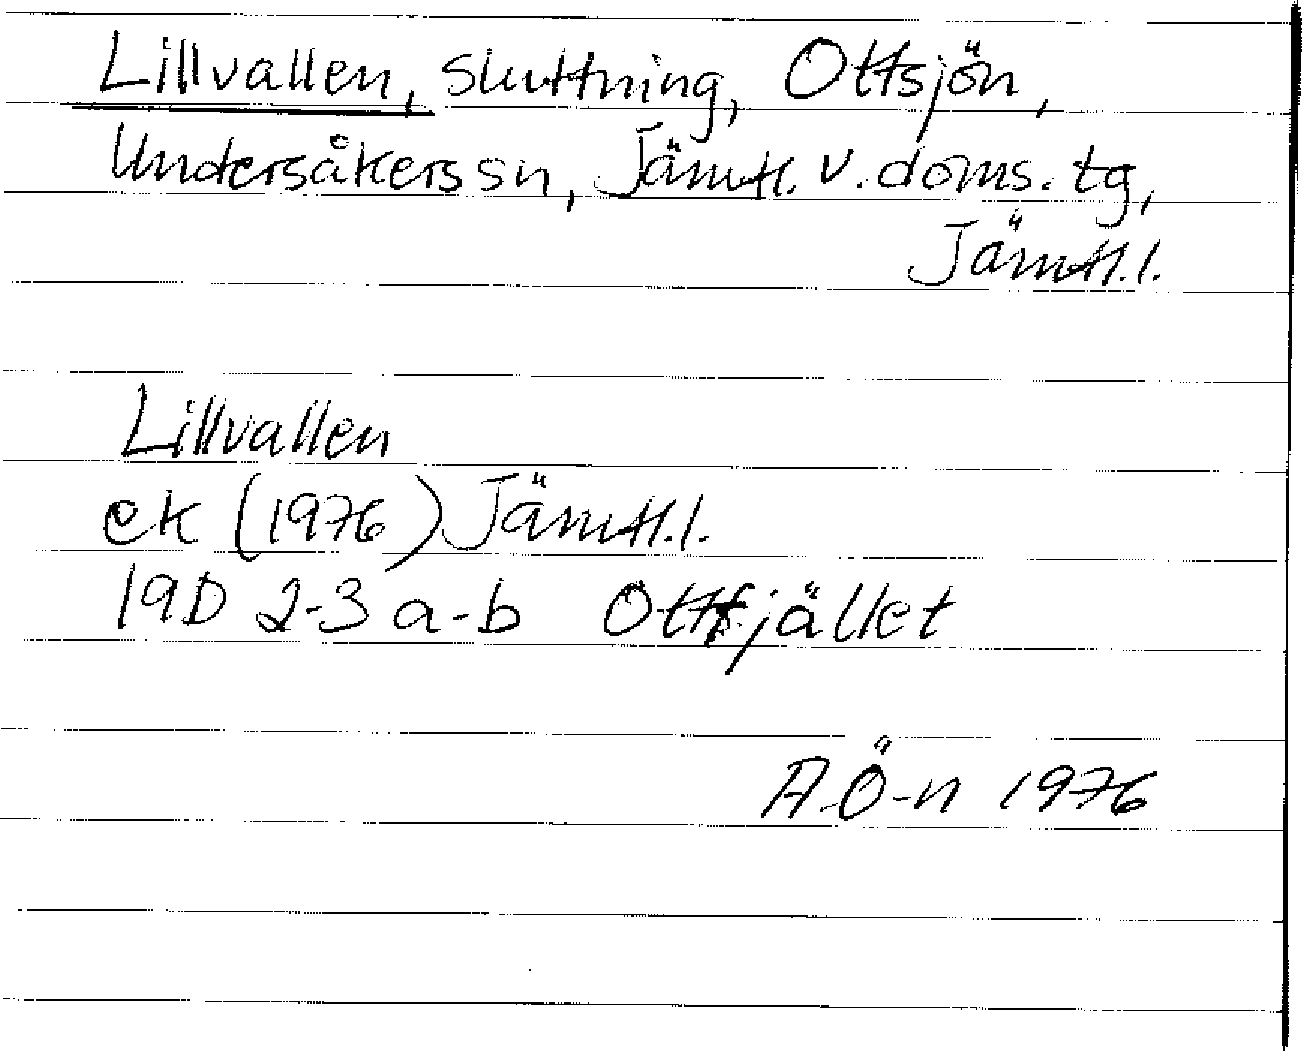 Lillvallen, sluttning, Ottsjön,
Undersåkers sn, Jämtl. v. doms. tg,
Jämtl.l.
Lillvallen
ek (1976) Jämtl.l.
19D 2-3 a-b Ottfjället
A.Ö-n 1976